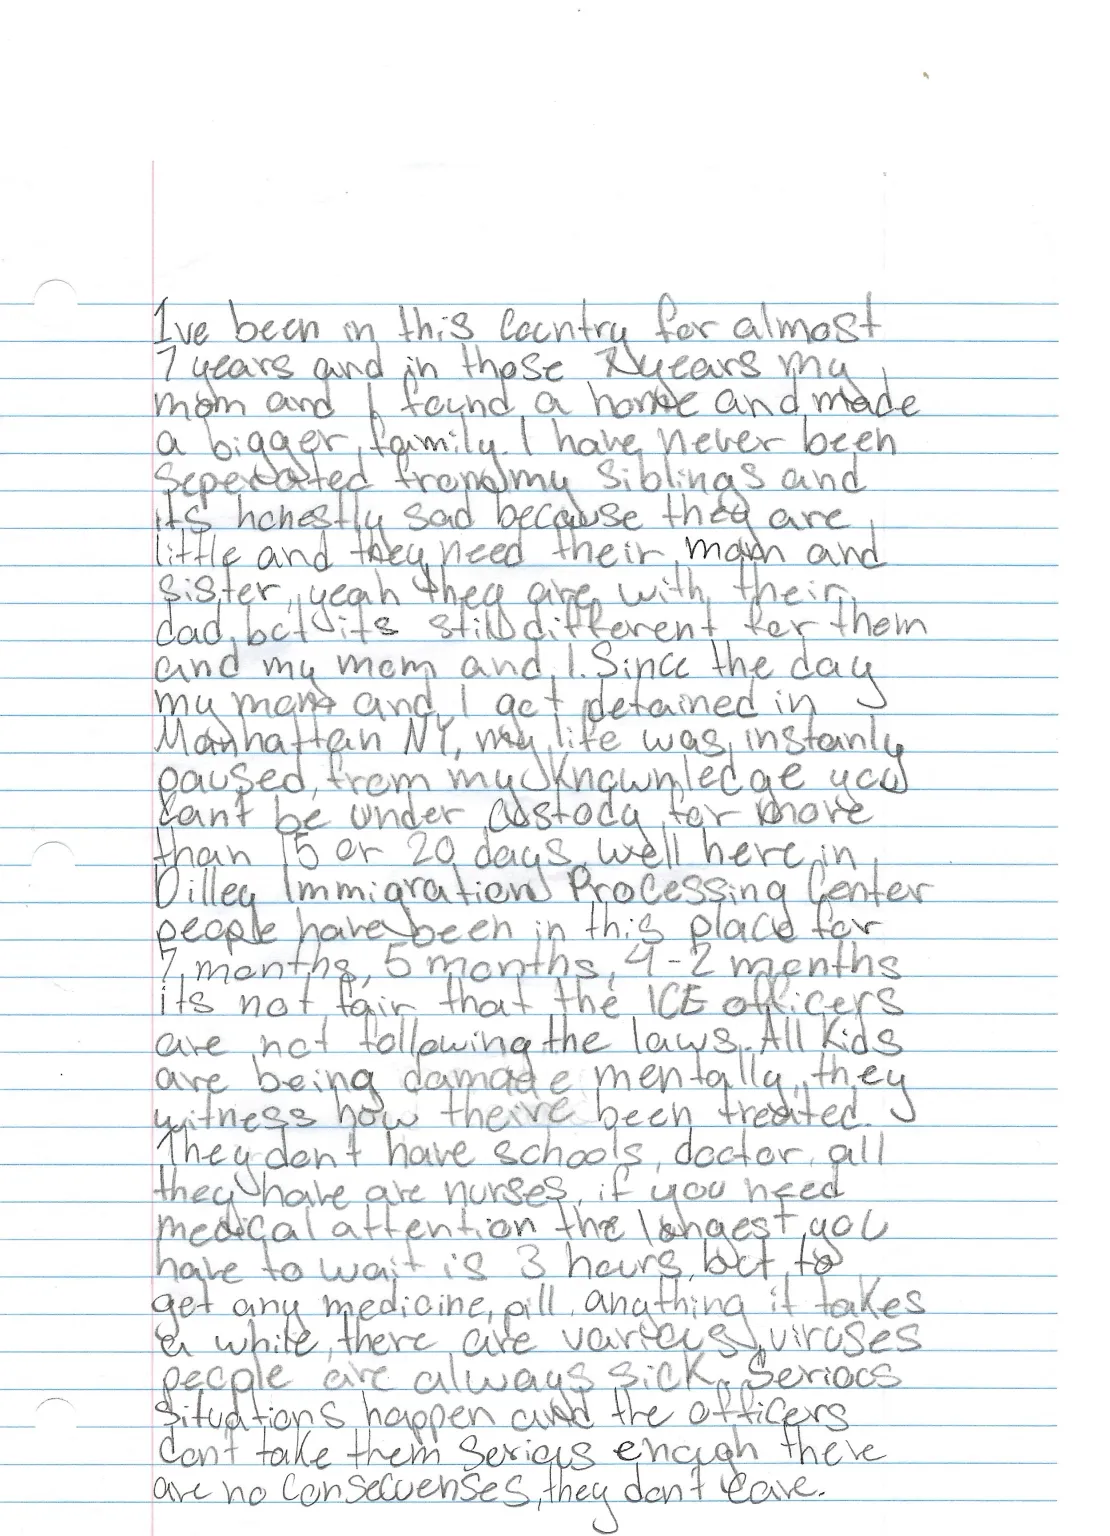 Ive been in this Country for almost
7 years and in those 7 years my
mom and I found a home and made
a bigger family. I have never been
seperated from my siblings and
its honestly sad because they are
little and they need their mom and
sister, yeah they are with their
dad, but its still different for them
and my mom and I. Since the day
my mom and I got detained in
Manhattan NY, my life was instanly
paused, from my Knowledge you
cant be under custody for more
than 15 or 20 days, well here in
Dilley Immigration Processing Center
people have been in this place for
7 months, 5 months, 4-2 months
its not fair that the ICE officers
are not following the laws. All kids
are being damade mentally, they
witness how theire been treated.
They don't have schools, doctor, all
they have are nurses, if you need
medical attention the longest you
have to wait is 3 hours, but to
get any medicine, pill, anything it takes
a while, there are various viruses
people are always sick. Serious
situations happen and the officers
don't take them serious enough there
are no consecuenses, they dont care.